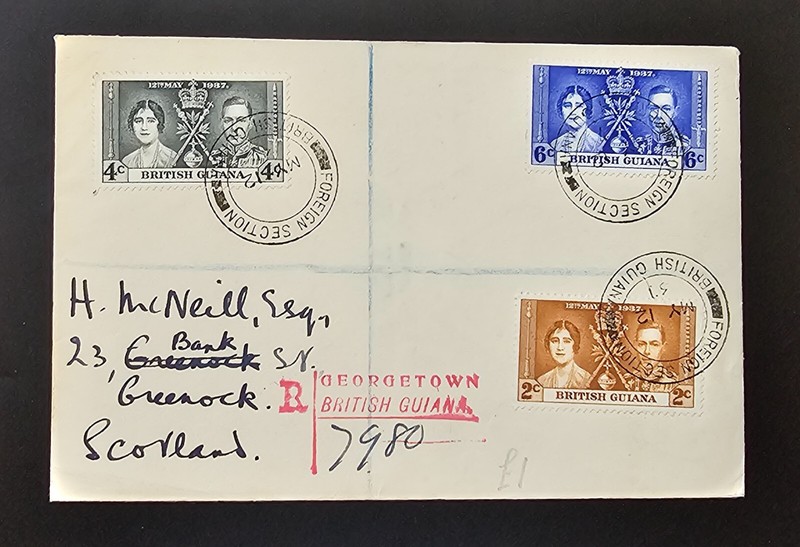 12TH MAY 1937.
4c 4c
BRITISH GUIANA
FOREIGN SECTION
BRITISH GUIANA
MY 12
12TH MAY 1937.
6c 6c
BRITISH GUIANA
FOREIGN SECTION
12TH MAY 1937.
2c 2c
BRITISH GUIANA
FOREIGN SECTION
BRITISH GUIANA
MY 12
37
H. McNeill, Esq.,
23, Greenock Bank St.
Greenock.
Scotland.
R GEORGETOWN
BRITISH GUIANA.
7980
£1